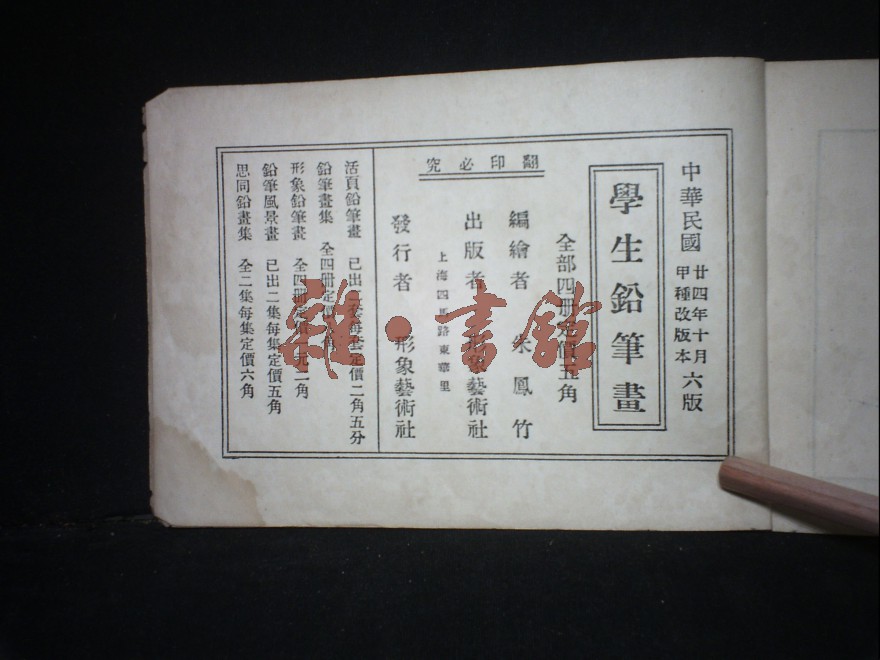 中華民國 廿四年十月 六版
甲種改版本
學生鉛筆畫
全部四册定價五角
翻印必究
編繪者 朱鳳竹
出版者 形象藝術社
上海四馬路東華里
發行者 形象藝術社
活頁鉛筆畫 已出二套每套定價二角五分
鉛筆畫集 全四册定價 角
形象鉛筆畫 全四册定價 元二角
鉛筆風景畫 已出二集每集定價五角
思同鉛畫集 全二集每集定價六角
雜·書館